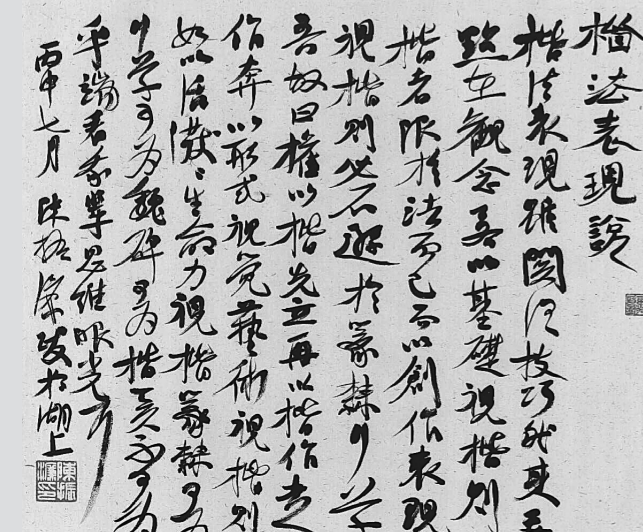 楷法表現說
楷法表現雖關乎技巧然更重
點在觀念吾以基礎視楷則
楷者限於法而已而以創作表現
視楷則必不遜於篆隸行草
吾故曰權以楷先立再以楷作走
作奔以形式視覺藝術視楷則
如以活潑潑生命力視楷篆隸可為
行草可為魏碑可為楷亦可為
乎端看各輩思維眼光方
丙申七月 陳振濂 於湖上
陳振濂印